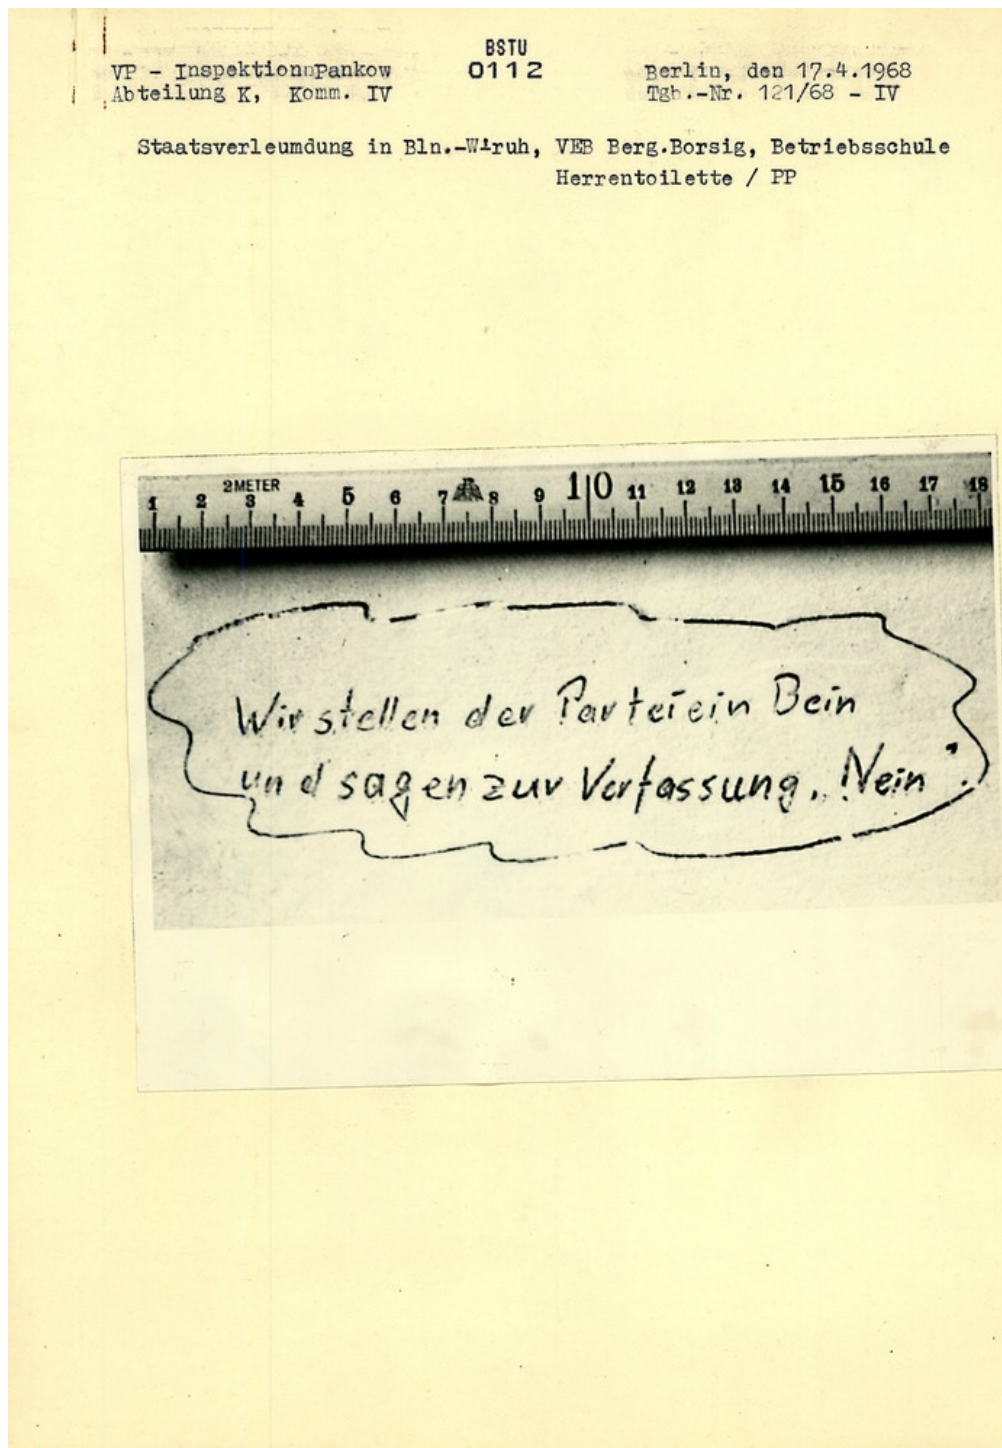 BSTU
0112
VP - InspektionnPankow
Abteilung K, Komm. IV
Berlin, den 17.4.1968
Tgb.-Nr. 121/68 - IV
Staatsverleumdung in Bln.-W1ruh, VEB Berg.Borsig, Betriebsschule
Herrentoilette / PP
2METER
1 2 3 4 5 6 7 8 9 10 11 12 13 14 15 16 17 18
Wir stellen der Partei ein Bein
und sagen zur Verfassung „Nein".